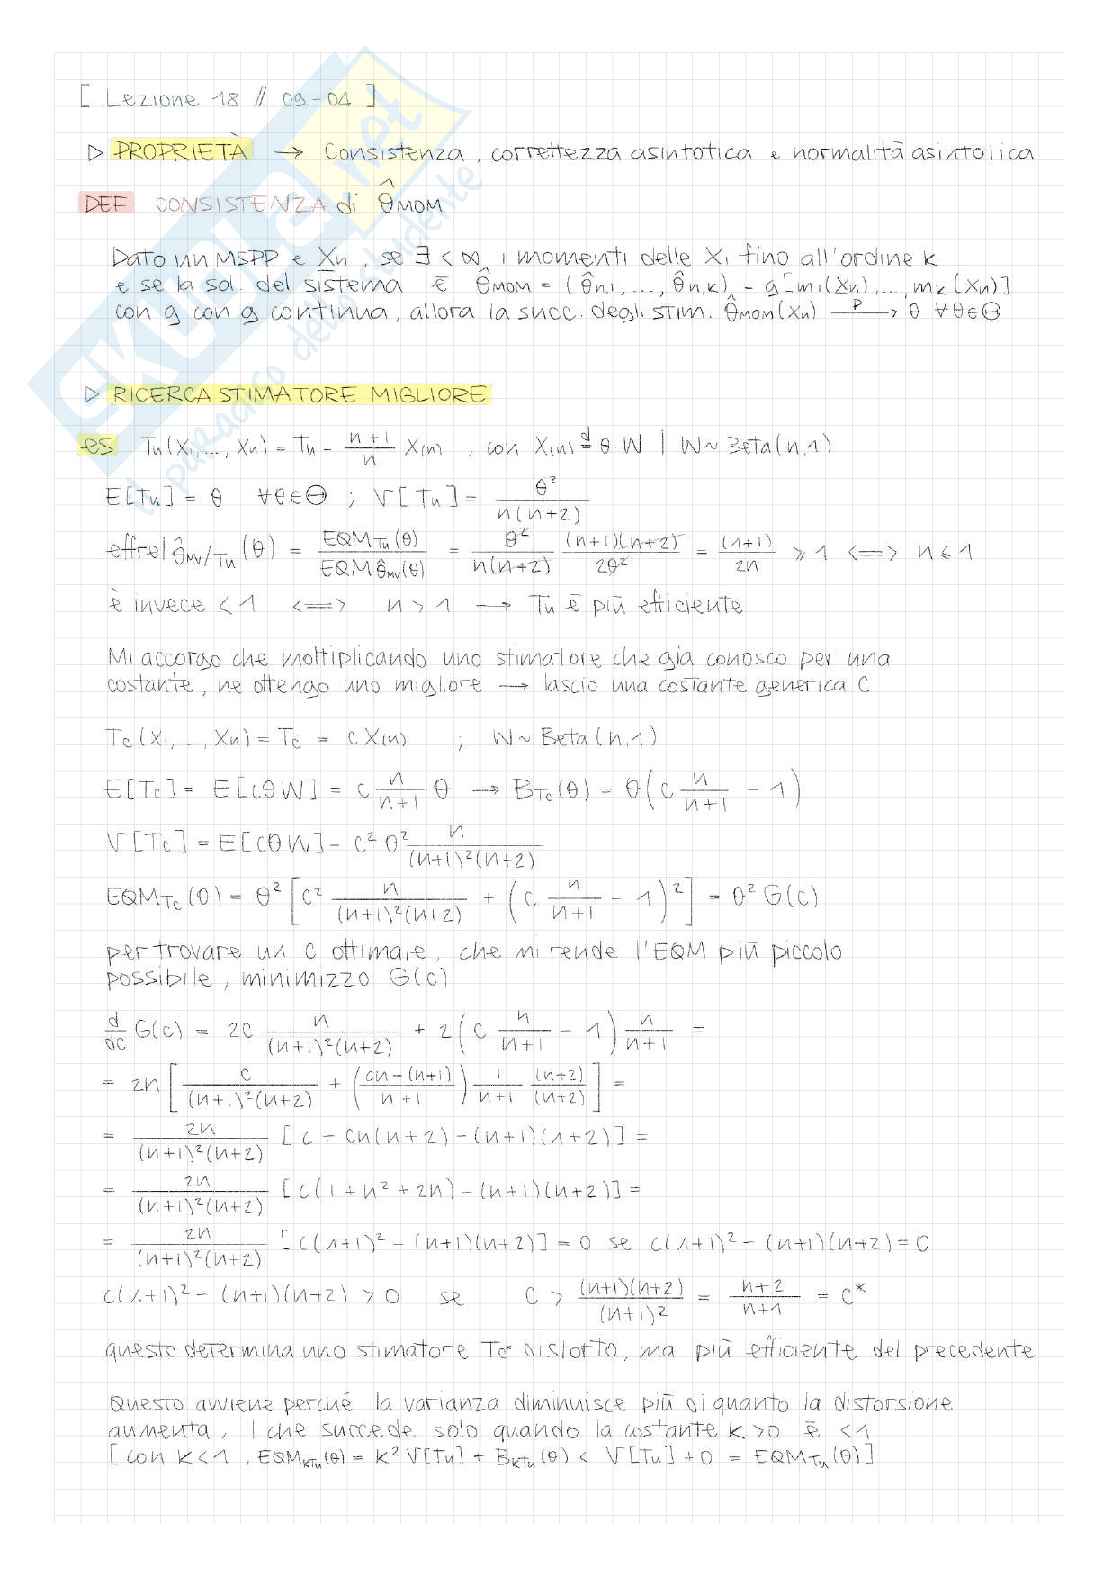 [ Lezione 18 // 09-04 ]
▷ PROPRIETÀ → Consistenza, correttezza asintotica e normalità asintotica
DEF CONSISTENZA di θ̂MOM
Dato un MSPP e Xn, se ∃ < ∞ i momenti delle Xi fino all'ordine k
e se la sol. del sistema è θ̂MOM = (θ̂n,1, ..., θ̂n,k) = g⁻¹(m1(Xn), ..., mk(Xn))
con g con g continua, allora la succ. degli stim. θ̂MOM(Xn) —P→ θ ∀θ∈Θ
▷ RICERCA STIMATORE MIGLIORE
es Tn(X1, ..., Xn) = Tn = (n+1)/n X(n), con X(n) =d θ W | W ~ Beta(n,1)
E[Tn] = θ ∀θ∈Θ ; V[Tn] = θ²/(n(n+2))
effrel θ̂MV/Tn (θ) = EQM Tn(θ) / EQM θ̂MV(θ) = θ²/(n(n+2)) (n+1)(n+2)/(2θ²) = (n+1)/2n ≥ 1 <=> n ≤ 1
è invece < 1 <=> n > 1 → Tn è più efficiente
Mi accorgo che moltiplicando uno stimatore che già conosco per una
costante, ne ottengo uno migliore → lascio una costante generica C
Tc(X1, ..., Xn) = Tc = c X(n) ; W ~ Beta(n,1)
E[Tc] = E[cθW] = c n/(n+1) θ → BTc(θ) = θ(c n/(n+1) - 1)
V[Tc] = E[cθW] = c² θ² n/((n+1)²(n+2))
EQM Tc(θ) = θ² [c² n/((n+1)²(n+2)) + (c n/(n+1) - 1)²] = θ² G(c)
per trovare un c ottimale, che mi rende l'EQM più piccolo
possibile, minimizzo G(c)
d/dc G(c) = 2c n/((n+1)²(n+2)) + 2(c n/(n+1) - 1) n/(n+1) =
= 2n [c/((n+1)²(n+2)) + ((cn-(n+1))/(n+1)) 1/(n+1) (n+2)/(n+2)] =
= 2n/((n+1)²(n+2)) [c - cn(n+2) - (n+1)(n+2)] =
= 2n/((n+1)²(n+2)) [c(1+n²+2n) - (n+1)(n+2)] =
= 2n/((n+1)²(n+2)) [c(n+1)² - (n+1)(n+2)] = 0 se c(n+1)² - (n+1)(n+2) = 0
c(n+1)² - (n+1)(n+2) > 0 se c > (n+1)(n+2)/(n+1)² = (n+2)/(n+1) = c*
questo determina uno stimatore Tc* distorto, ma più efficiente del precedente
Questo avviene perché la varianza diminuisce più di quanto la distorsione
aumenta, che succede solo quando la costante k > 0 è < 1
[con k < 1, EQM kTn(θ) = k² V[Tn] + B kTn(θ) < V[Tn] + 0 = EQM Tn(θ)]